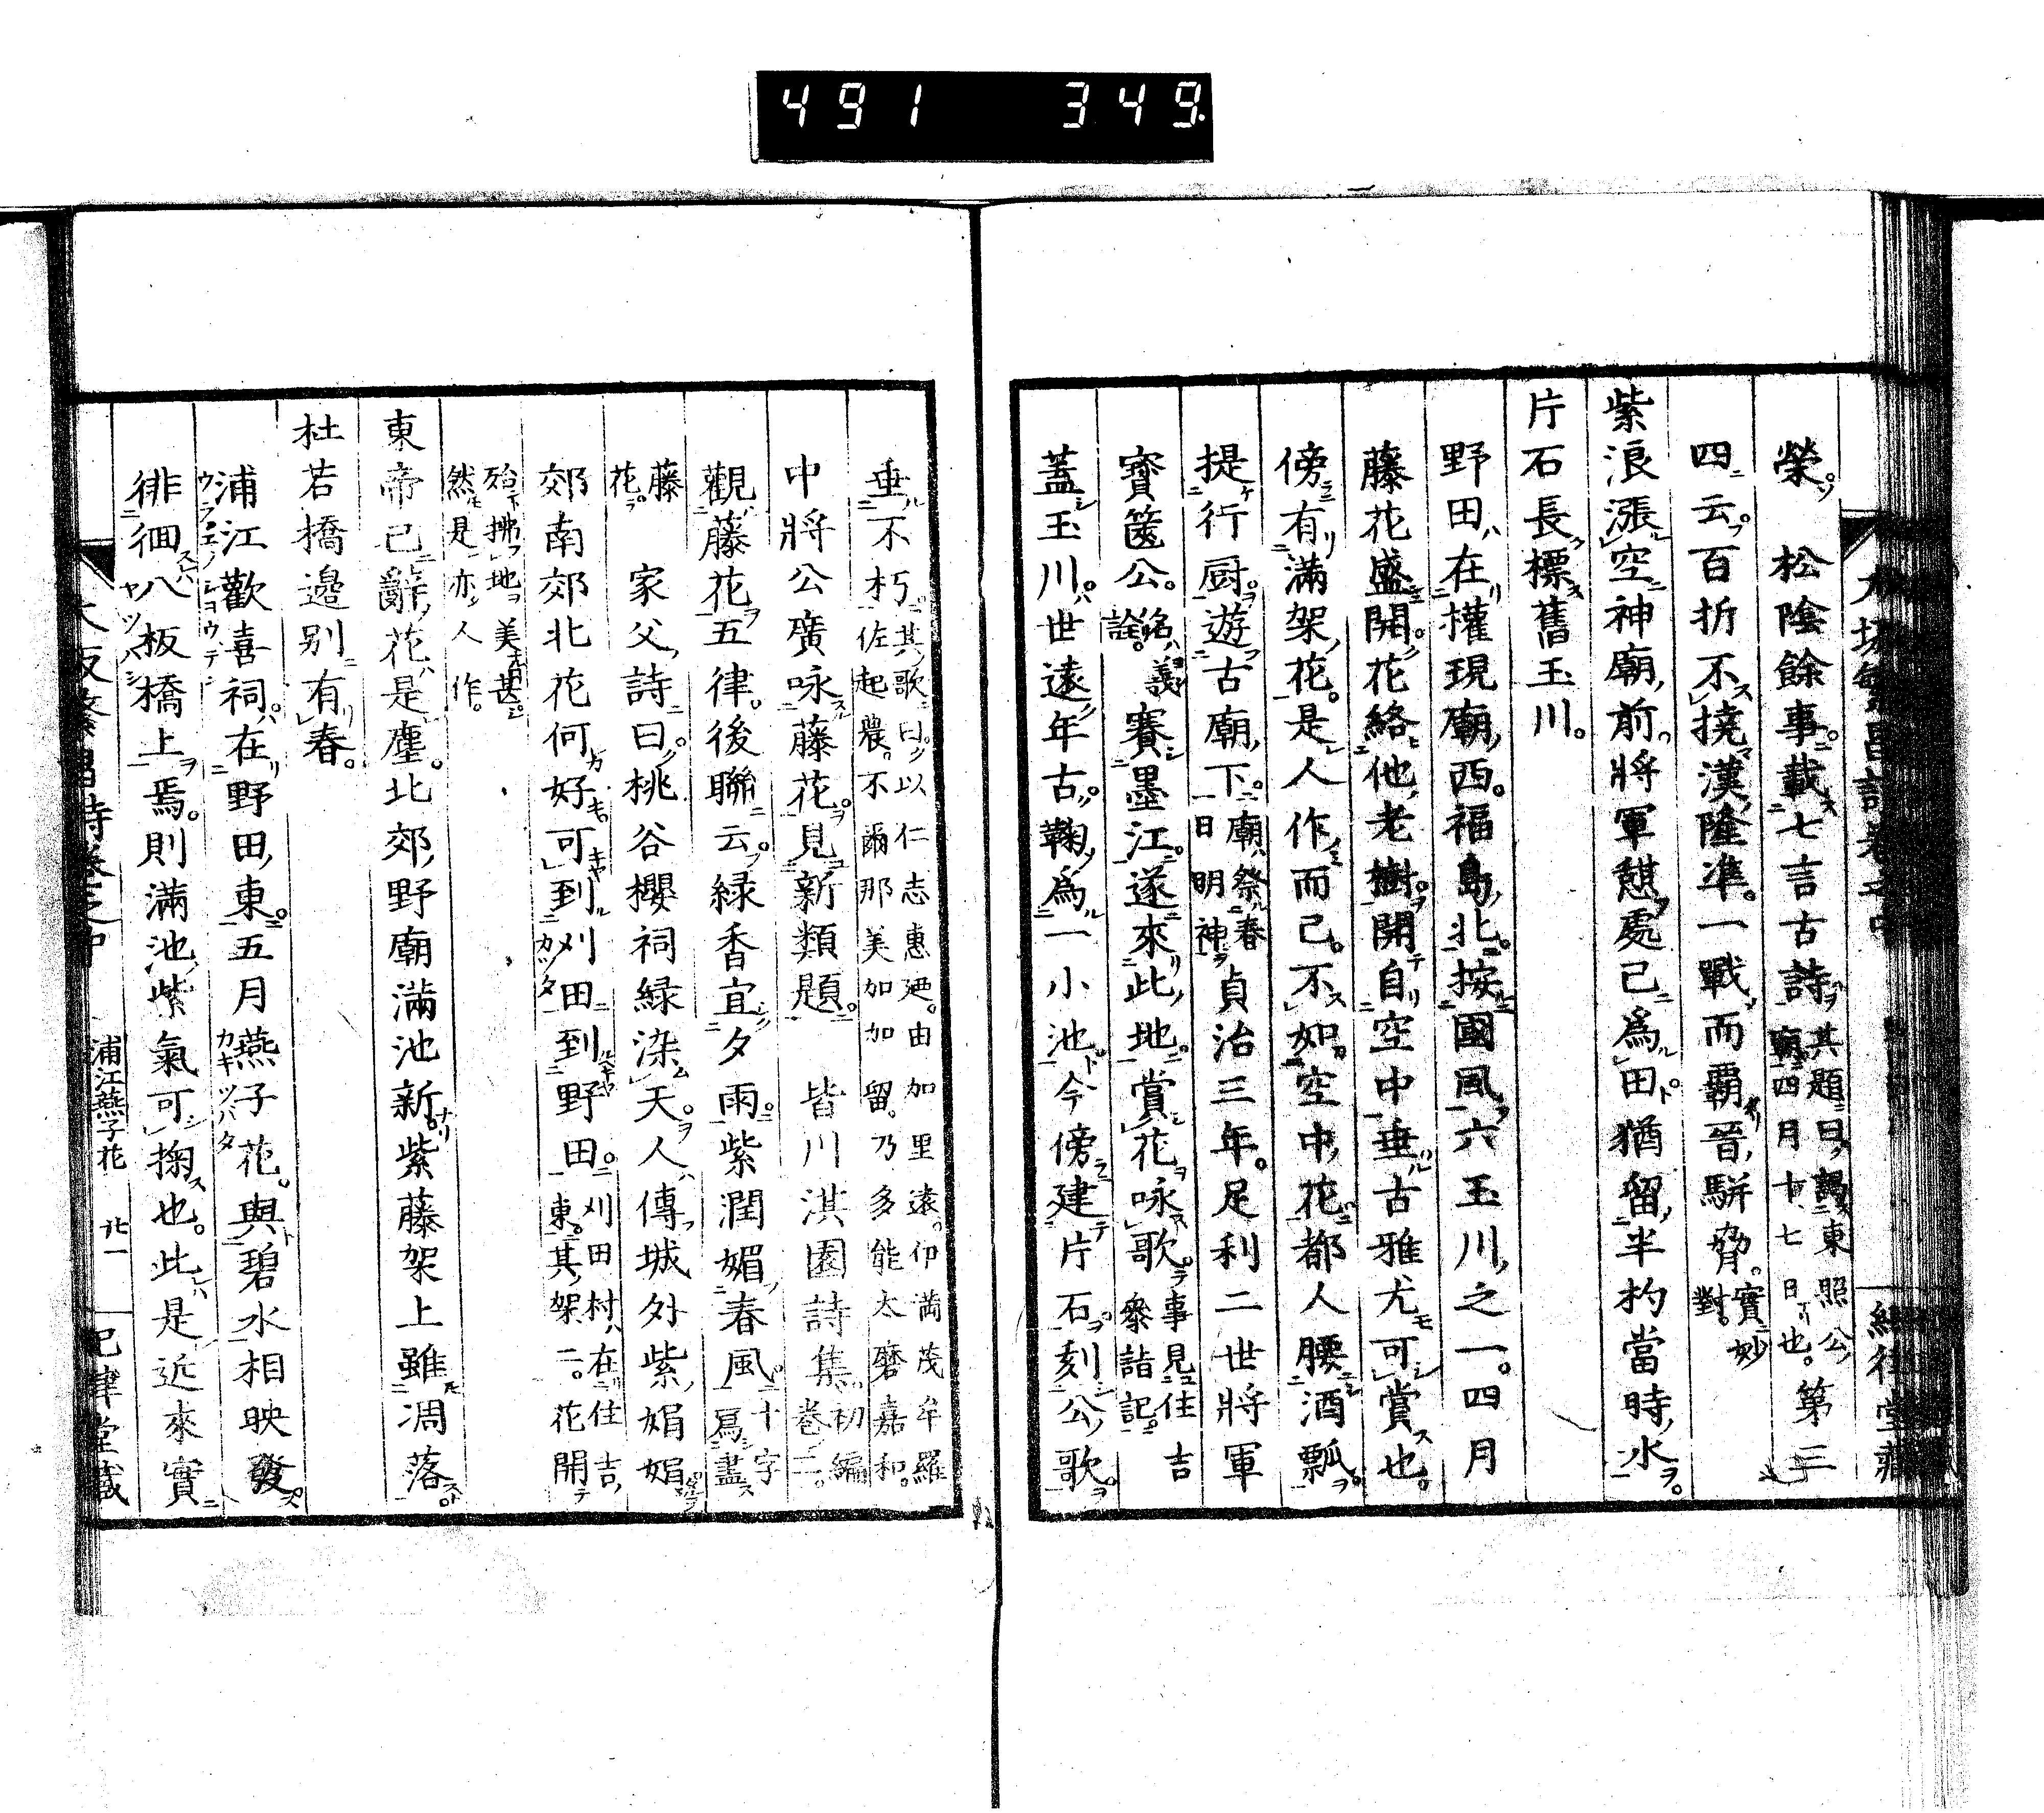 491 349
榮。松陰餘事。載七言古詩。其題曰。謁東照公廟。四月十七日也。第三
四云。百折不撓漢隆準。一戰而覇晉駢脅。實妙對。
紫浪漲空神廟前將軍憩處已爲田猶留半杓當時水
片石長標舊玉川。
野田在權現廟西。福島北。按國風六玉川之一。四月
藤花盛開。花絡他老樹。開自空中垂。古雅尤可賞也。
傍有滿架花。是人作而已。不如空中花。都人腰酒瓢
提行厨。遊古廟下。廟祭春日明神。貞治三年。足利二世將軍
寳篋公。名義詮。賽墨江。遂來此地。賞花咏歌。事見住吉參詣記。
蓋玉川。世遠年古。鞠爲一小池。今傍建片石。刻公歌。
垂不朽。其歌曰。以仁志惠廼。由加里遠。伊萬茂牟羅佐起農。不爾那美加加留。乃多能太磨嘉和。
中將公廣咏藤花。見新類題。皆川淇園詩集。初編卷二。
觀藤花五律。後聯云。緑香宜夕雨。紫潤媚春風。十字寫盡
藤花。家父詩曰。桃谷櫻祠緑染天。人傳城外紫媚媚
郊南郊北花何好可到刈田到野田。刈田村在住吉東。其架二。花開
殆拂地。美甚。然是亦人作。
東帝已辭花是塵。北郊野廟滿池新紫藤架上雖凋落
杜若橋邉别有春。
浦江歡喜祠。在野田東。五月燕子花。與碧水相映發。
徘徊八板橋上焉。則滿池紫氣可掬也。此是近來實
浦江燕子花 廿一